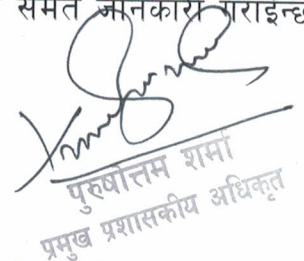 समेत जानकारी गराइन्छ
पुरुषोत्तम शर्मा
प्रमुख प्रशासकीय अधिकृत